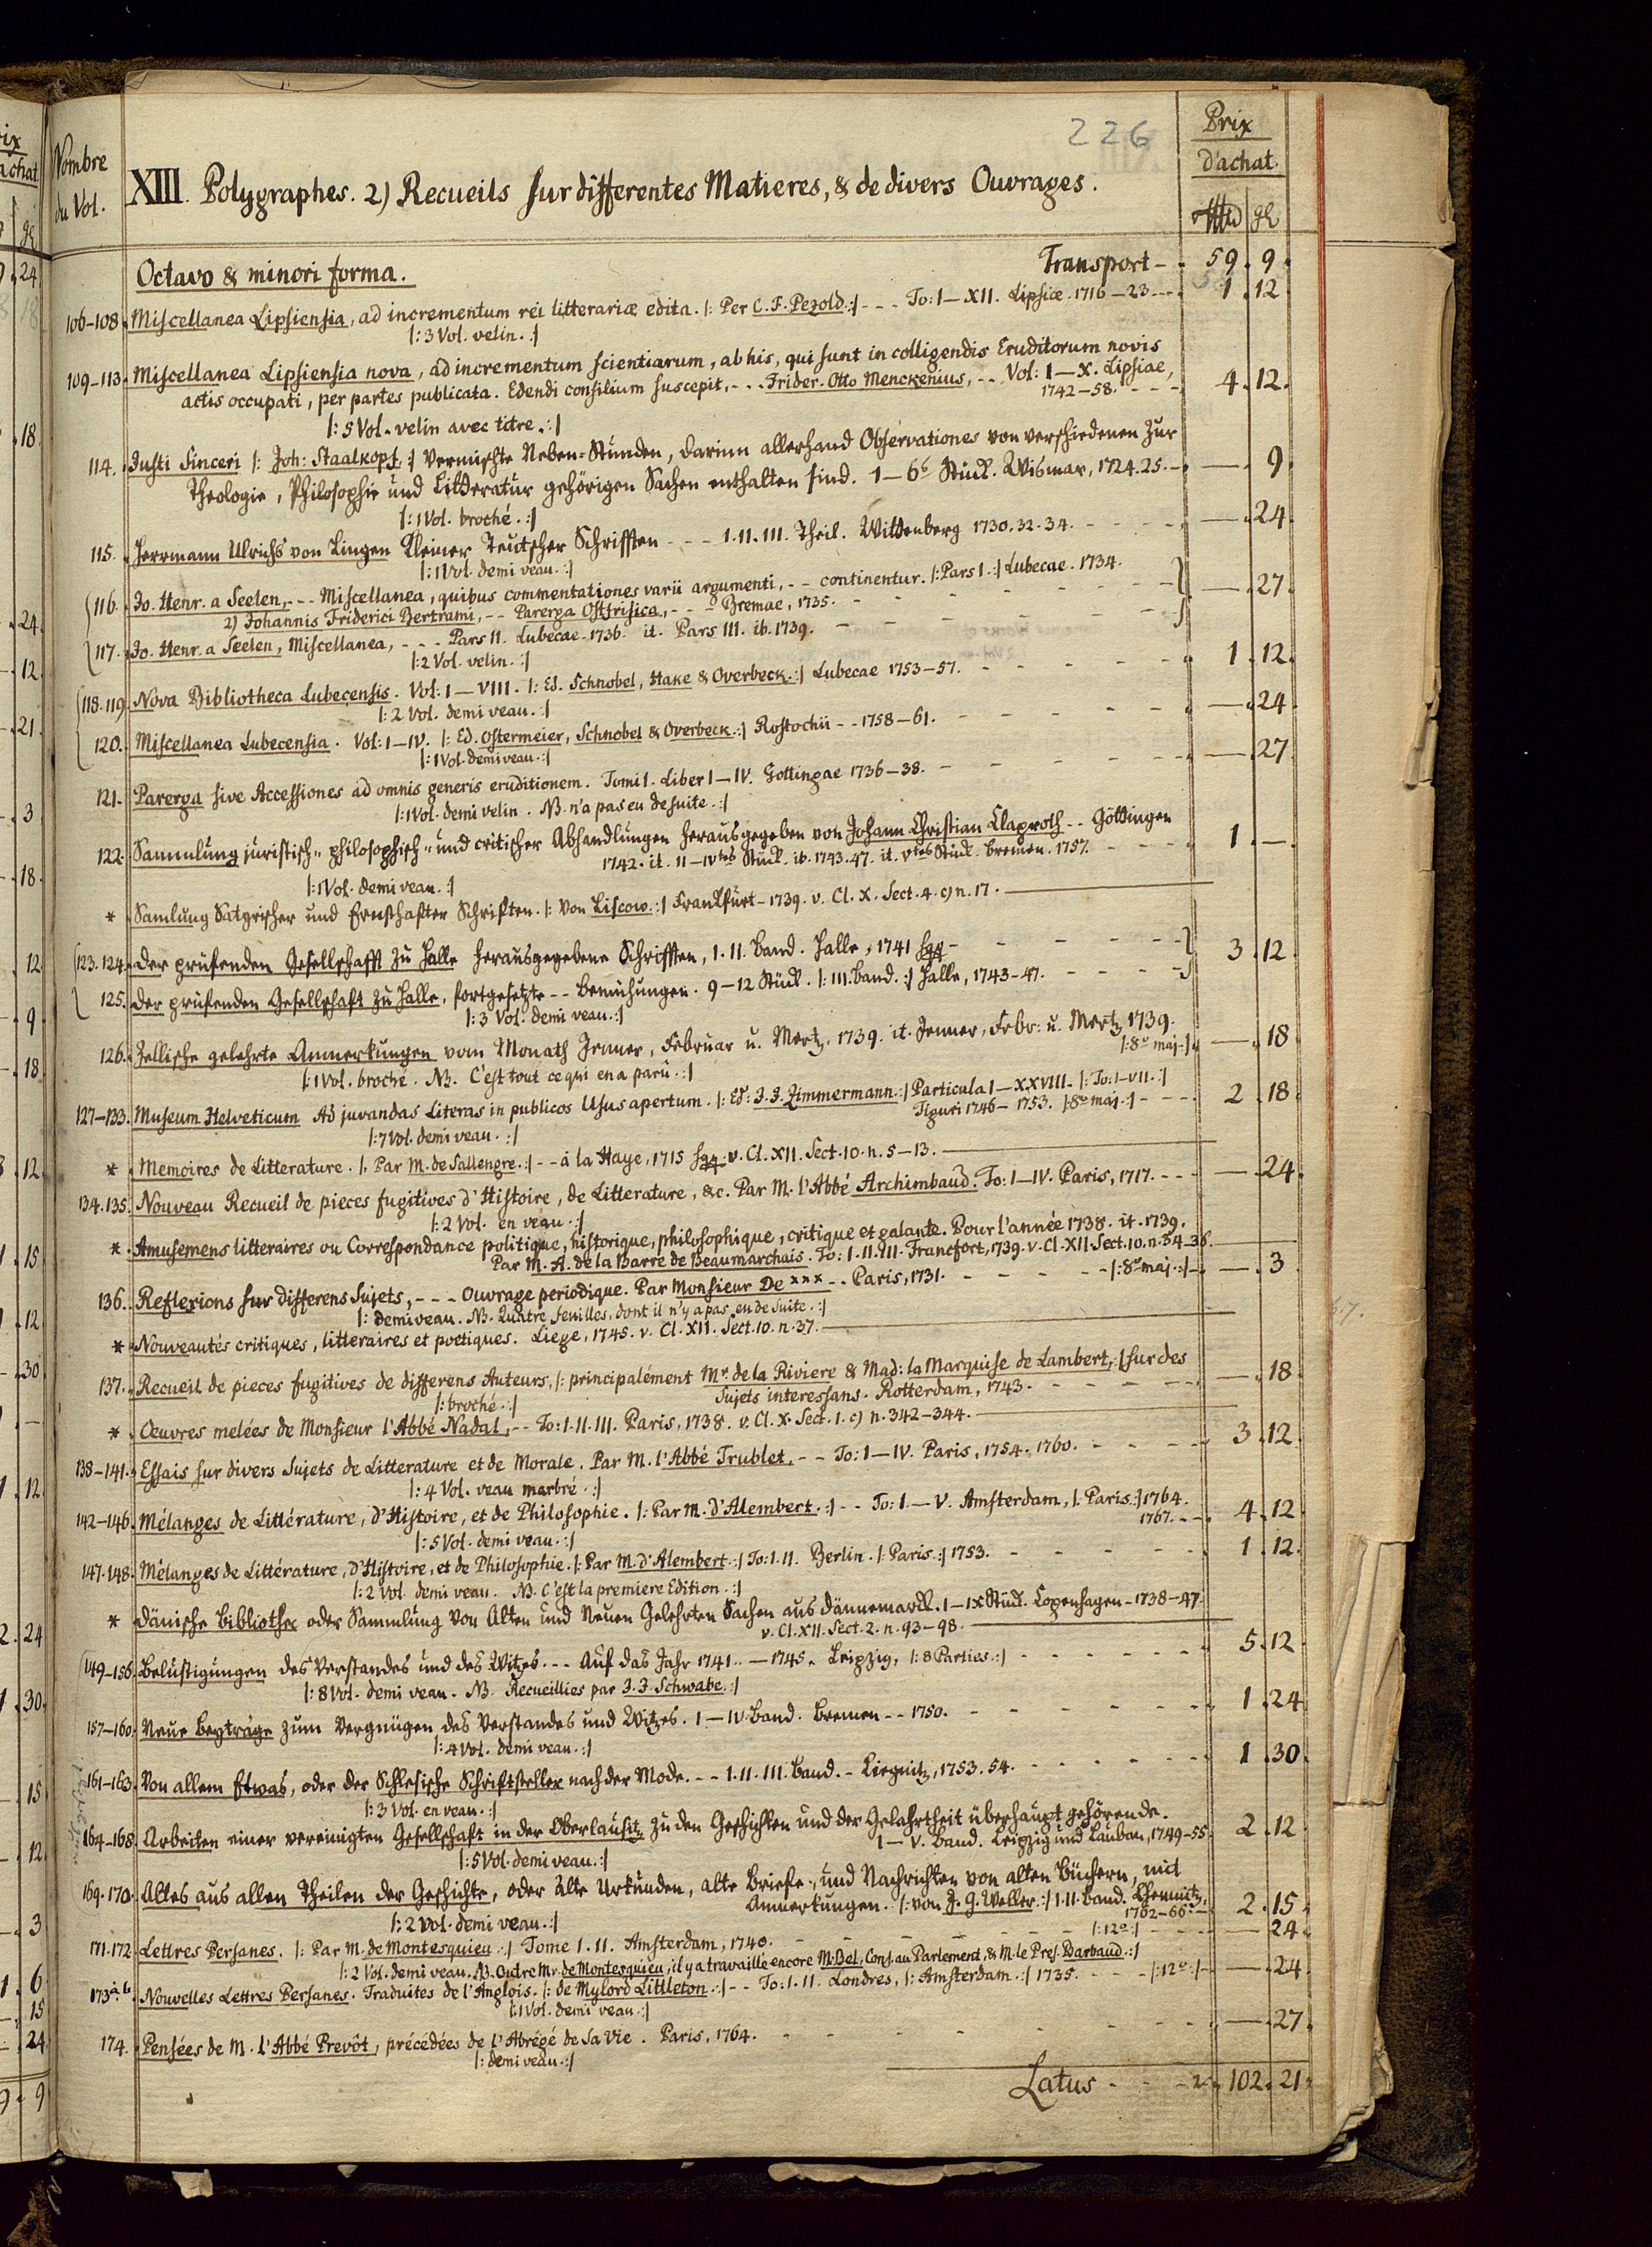 226
Prix
d'achat.
Nombre
du Vol.
XIII. Polygraphes. 2) Recueils sur differentes Matieres, & de divers Ouvrages.
gl
Octavo & minori forma. Transport - . 59 . 9 .
106-108. Miscellanea Lipsiensia, ad incrementum rei litterariæ edita. |: Per C. F. Pezold :| - - - To: I-XII. Lipsiæ. 1716-23 - - - 1 . 12
|: 3 Vol. velin. :|
109-113. Miscellanea Lipsiensia nova, ad incrementum scientiarum, ab his, qui sunt in colligendis Eruditorum novis
actis occupati, per partes publicata. Edendi consilium suscepit, - - - Frider. Otto Menckenius, - - Vol: I-X. Lipsiae,
1742-58. - - - 4 . 12 .
|: 5 Vol. velin avec titre. :|
114. Justi Sinceri |: Joh: Staalkopf. :| Vermischte Neben=Stunden, darinn allerhand Observationes von verschiedenen zur
Theologie, Philosophie und Litderatur gehörigen Sachen enthalten sind. 1-6s Stück. Wismar, 1724. 25. - . — . 9 .
|: 1 Vol. broché. :|
115. Herrmann Ulrichs von Lingen Kleiner Teutscher Schrifften - - - I. II. III. Theil. Wittenberg 1730. 32. 34. - - - - — . 24
|: 1 Vol. demi veau. :|
116. Jo. Henr. a Seelen, - - - Miscellanea, quibus commentationes varii argumenti, - - continentur. |: Pars I. :| Lubecae. 1734.
2) Johannis Friderici Bertrami, - - Parerga Ostfrisica, - - - Bremae, 1735. - - - - — . 27 .
117. Jo. Henr. a Seelen, Miscellanea, - - - Pars II. Lubecae. 1736. it. Pars III. ib. 1739. - - - -
|: 2 Vol. velin. :|
118. 119. Nova Bibliotheca Lubecensis. Vol: I-VIII. |: Ed. Schnobel, Hake & Overbeck. :| Lubecae 1753-57. - - - - 1 . 12 .
|: 2 Vol. demi veau. :|
120. Miscellanea Lubecensia. Vol: I-IV. |: Ed. Ostermeier, Schnobel & Overbeck. :| Rostochii - - 1758-61. - - - - — . 24
|: 1 Vol. demi veau. :|
121. Parerga sive Accessiones ad omnis generis eruditionem. Tomi I. Liber I-IV. Gottingae 1736-38. - - - - — . 27
|: 1 Vol. demi velin. NB. n'a pas eu de suite. :|
122. Sammlung juristisch= philosophisch= und critischer Abhandlungen herausgegeben von Johann Christian Claproth - - Göttingen
1742. it. II-IVtes Stück. ib. 1743. 47. it. Vtes Stück. Bremen. 1757. - - - 1 . — .
|: 1 Vol. demi veau. :|
* Samlung Satyrischer und Ernsthafter Schriften. |: Von Liscow. :| Franckfurt - 1739. v. Cl. X. Sect. 4. c) n. 17. —
123. 124. Der prüfenden Gesellschafft zu Halle herausgegebene Schrifften, I. II. Band. Halle, 1741 sqq - - - - 3 . 12 .
125. Der prüfenden Gesellschaft zu Halle, fortgesetzte - - Bemühungen. 9-12 Stück. |: III. Band. :| Halle, 1743-47. - - - -
|: 3 Vol. demi veau. :|
126. Zellische gelehrte Anmerkungen vom Monath Jenner, Februar u. Mertz, 1739. it. Jenner, Febr: u. Mertz, 1739.
|: 8° maj. :| — . 18
|: 1 Vol. broché. NB. C'est tout ce qui en a paru. :|
127-133. Museum Helveticum Ad juvandas Literas in publicos Usus apertum. |: Ed: J. J. Zimmermann. :| Particula I-XXVIII. |: To: I-VII. :|
Tiguri 1746-1753. |: 8° maj. :| - - - 2 . 18 .
|: 7 Vol. demi veau. :|
* Memoires de Litterature. |: Par M. de Sallengre. :| - - à la Haye, 1715 sqq. v. Cl. XII. Sect. 10. n. 5-13. —
134. 135. Nouveau Recueil de pieces fugitives d'Histoire, de Litterature, &c. Par M. l'Abbé Archimbaud. To: I-IV. Paris, 1717. - - - — . 24
|: 2 Vol. en veau. :|
* Amusemens litteraires ou Correspondance politique, historique, philosophique, critique et galante. Pour l'année 1738. it. 1739.
Par M. A. de la Barre de Beaumarchais. To: I. II. III. Francfort, 1739. v. Cl. XII. Sect. 10. n. 34-36.
136. Reflexions sur differens Sujets, - - - Ouvrage periodique. Par Monsieur De *** - - Paris, 1731. - - - - |: 8° maj. :| - . — . 3
|: demi veau. NB. Quatre feuilles, dont il n'y a pas eu de suite. :|
* Nouveautés critiques, litteraires et poetiques. Liege, 1745. v. Cl. XII. Sect. 10. n. 37. —
137. Recueil de pieces fugitives de differens Auteurs, |: principalément Mr. de la Riviere & Mad: la Marquise de Lambert, :| sur des
Sujets interessans. Rotterdam, 1743. - - - - — . 18
|: broché. :|
* Œuvres melées de Monsieur l'Abbé Nadal, - - To: I. II. III. Paris, 1738. v. Cl. X. Sect. 1. c) n. 342-344. —
138-141. Essais sur divers Sujets de Litterature et de Morale. Par M. l'Abbé Trublet, - - To: I-IV. Paris, 1754. 1760. - - - 3 . 12 .
|: 4 Vol. veau marbré. :|
142-146. Mélanges de Littérature, d'Histoire, et de Philosophie. |: Par M. d'Alembert. :| - - To: I-V. Amsterdam, |: Paris. :| 1764.
1767. - - 4 . 12 .
|: 5 Vol. demi veau. :|
147. 148. Mélanges de Littérature, d'Histoire, et de Philosophie. |: Par M. d'Alembert. :| To: I. II. Berlin. |: Paris. :| 1753. - - - - 1 . 12 .
|: 2 Vol. demi veau. NB. C'est la premiere Edition. :|
* Dänische Bibliothec oder Sammlung von Alten und Neuen Gelehrten Sachen aus Dännemarck. I-IX Stück. Copenhagen - 1738-47.
v. Cl. XII. Sect. 2. n. 93-98. —
149-156. Belustigungen des Verstandes und des Witzes. - - Auf das Jahr 1741. - 1745. Leipzig, |: 8 Parties. :| - - - - 5 . 12
|: 8 Vol. demi veau. NB. Recueillies par J. J. Schwabe. :|
157-160. Neue Beyträge zum Vergnügen des Verstandes und Witzes. I-IV. Band. Bremen - - 1750. - - - - 1 . 24
|: 4 Vol. demi veau. :|
161-163. Von allem Etwas, oder der Schlesische Schriftsteller nach der Mode. - - I. II. III. Band. - Liegnitz, 1753. 54. - - - - 1 . 30 .
|: 3 Vol. en veau. :|
164-168. Arbeiten einer vereinigten Gesellschaft in der Oberlausitz zu den Geschichten und der Gelahrtheit überhaupt gehörende.
I-V. Band. Leipzig und Lauban, 1749-55. 2 . 12
|: 5 Vol. demi veau. :|
169. 170. Altes aus allen Theilen der Geschichte, oder Alte Urkunden, alte Briefe, und Nachrichten von alten Büchern, mit
Anmerkungen. |: von J. G. Weller. :| I. II. Band. Chemnitz,
1762-66. - 2 . 15 .
|: 2 Vol. demi veau. :|
171. 172. Lettres Persanes. |: Par M. de Montesquieu. :| Tome I. II. Amsterdam, 1740. - - - - |: 12° :| - - - — . 24 .
|: 2 Vol. demi veau. NB. Outre Mr. de Montesquieu, il y a travaillé encore M. Bel, Cons. au Parlement, & M. le Pres. Barbaud. :|
173 a. b. Nouvelles Lettres Persanes. Traduites de l'Anglois. |: de Mylord Littleton. :| - - To: I. II. Londres, |: Amsterdam. :| 1735. - - - |: 12° :| - — . 24
|: 1 Vol. demi veau. :|
174. Pensées de M. l'Abbé Prevôt, précédées de l'Abrégé de sa Vie. Paris, 1764. - - - - — . 27 .
|: demi veau. :|
Latus - - - 102 . 21 .